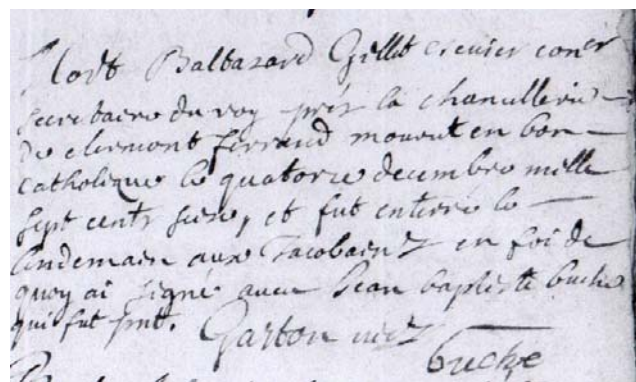 Mort Baltazard Gillet escuier coner
secretaire du roy prez la chancellerie
de clermont ferrand mourut en bon
catholique le quatorze decembre mille
sept cents seize, et fut enterré le
lendemain aux Jacobains en foi de
quoy ai signé avec Jean baptiste buche
qui fut pnt. Garton
buche